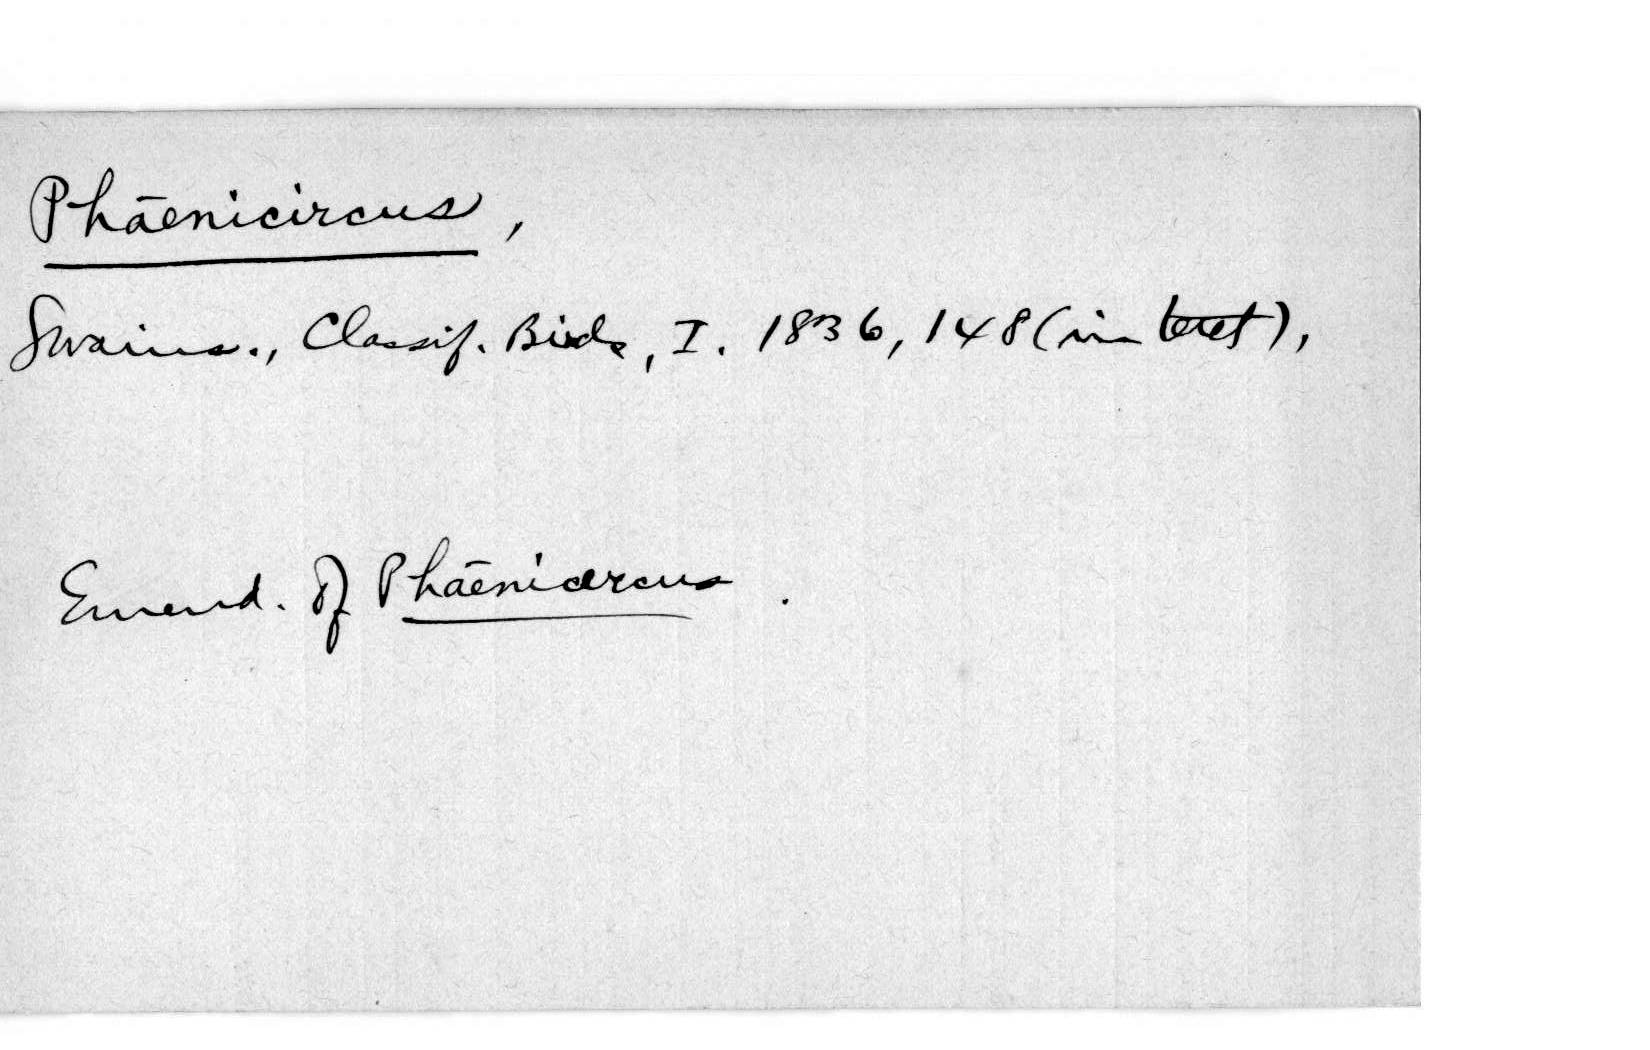 Phāenicircus,
Swains., Classif. Birds, I. 1836, 148 (in text),
Emend. of Phāenicercus.